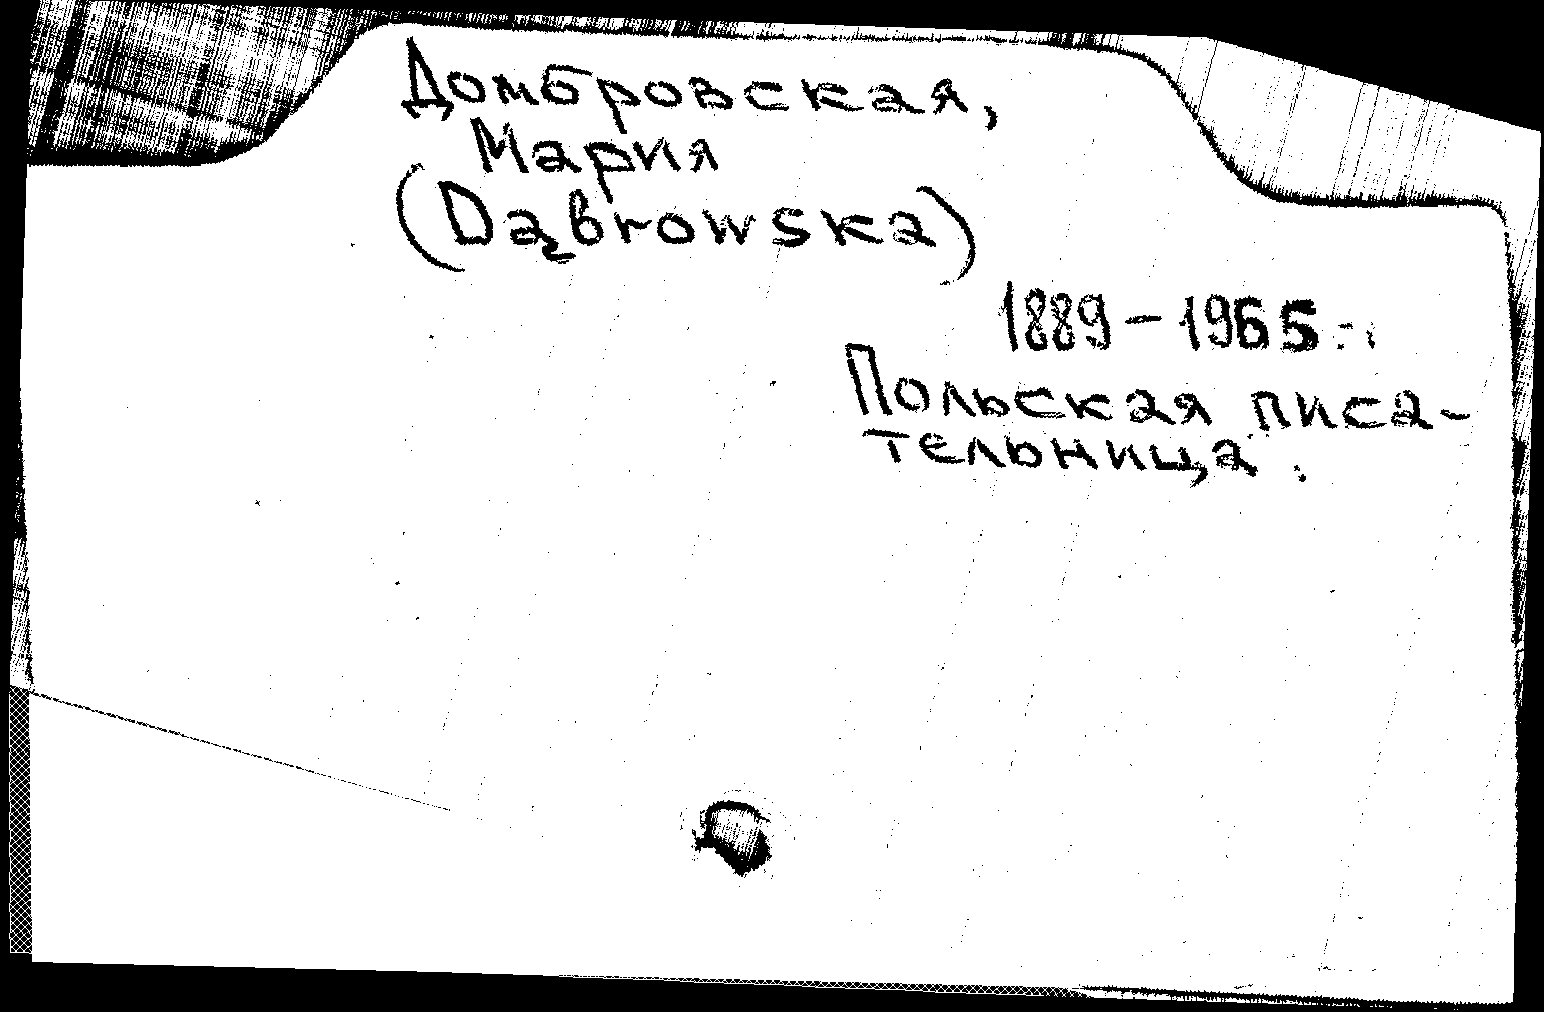 Домбровская,
Мария
(Dąbrowska)
1889-1965.
Польская писа-
тельница.